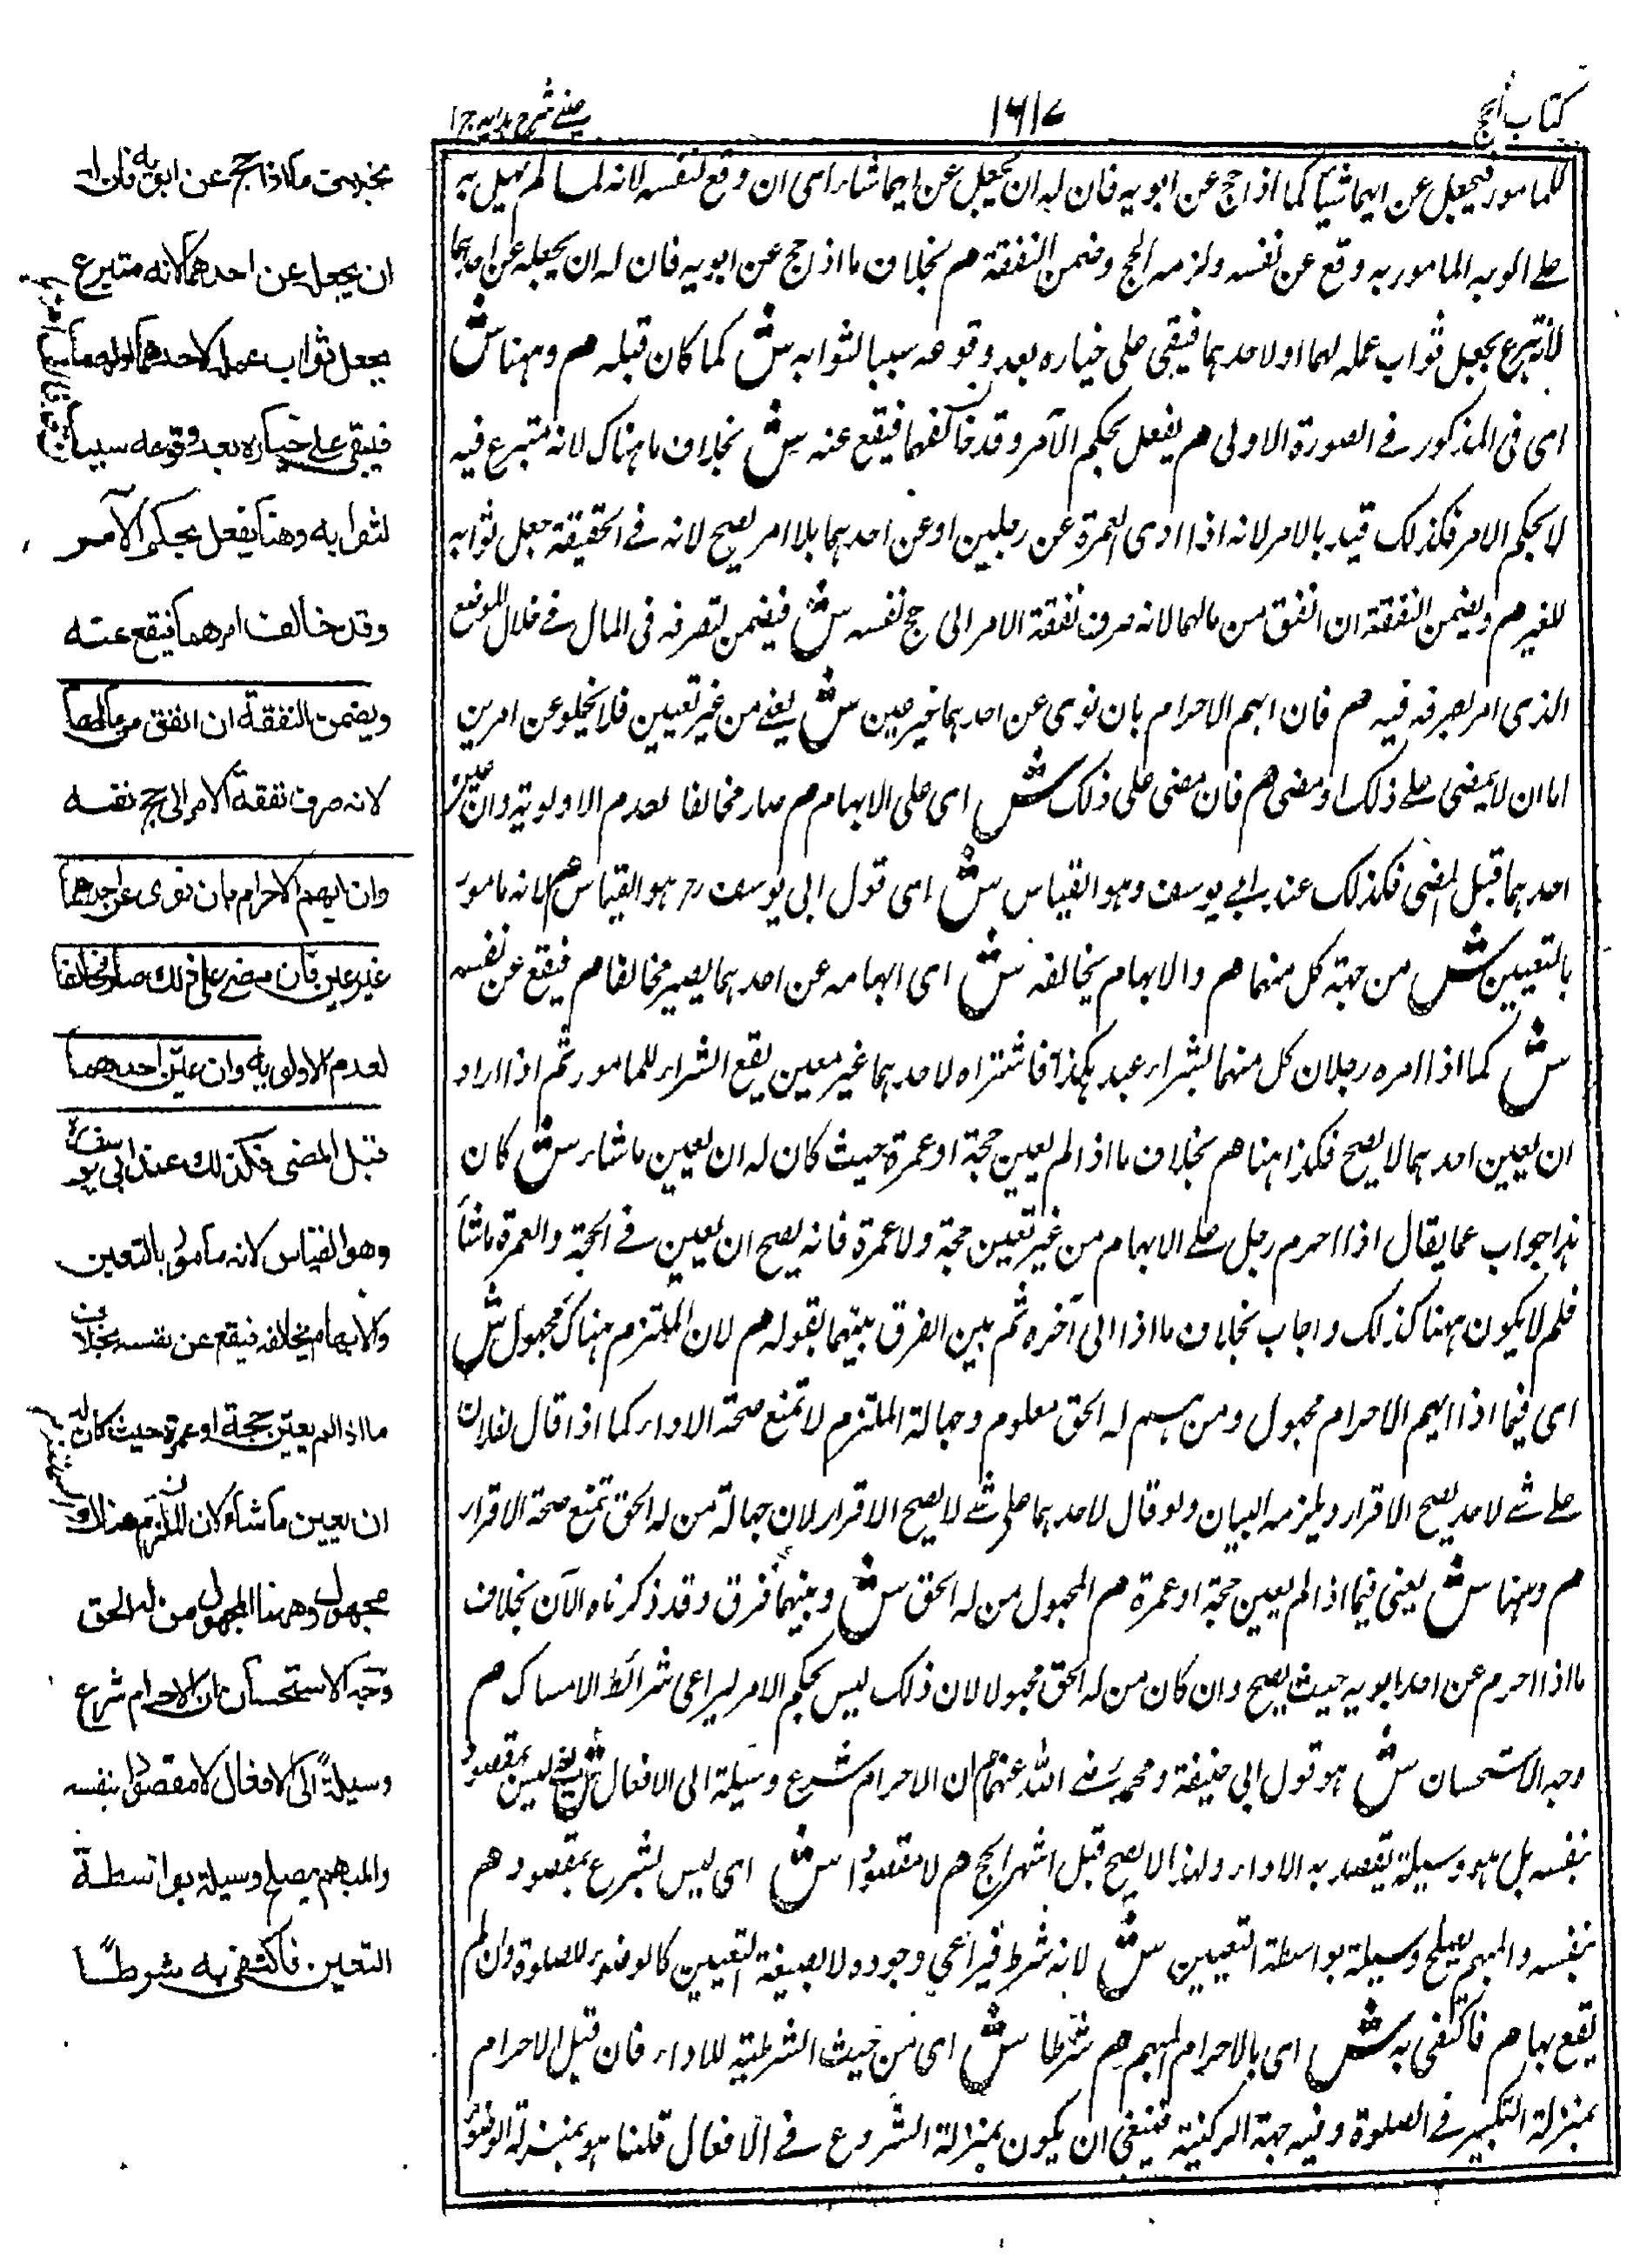 كتاب الحج
١٦١٧
عيني شرح هدايه ج ١
للمامور فيجعل عن ايهما شيئا كما اذا حج عن ابويه فان له ان يجعل عن ايهما شاء اى ان وقع لنفسه لانه لما لم يهل به
على الوجه المامور به وقع عن نفسه ولزمه الحج وضمن النفقة م بخلاف ما اذا حج عن ابويه فان له ان يجعله عن احدهما
لانه تبرع بجعل ثواب عمله لهما او لاحدهما فيبقى على خياره بعد وقوعه سببا لثوابه ش كما كان قبله م وههنا ش
اى فى المذكور فى الصورة الاولى م يفعل بحكم الآمر وقد خالفهما فيقع عنه ش بخلاف ما هناك لانه متبرع فيه
لا بحكم الامر فكذلك قيد بالامر لانه اذا ادى العمرة عن رجلين او عن احدهما بلا امر يصح لانه فى الحقيقة جعل ثوابه
للغير م ويضمن النفقة ان انفق من مالهما لانه صرف نفقة الامر الى حج نفسه ش فيضمن لتصرفه فى المال فى خلال الموضع
الذى امر بصرفه فيه م فان ابهم الاحرام بان نوى عن احدهما غير عين ش يعنى من غير تعيين فلا يخلو عن امرين
اما ان لا يمضى على ذلك او مضى م فان مضى على ذلك ش اى على الابهام م صار مخالفا لعدم الاولوية وان عين
احدهما قبل المضى فكذلك عند ابى يوسف وهو القياس ش اى قول ابى يوسف رح هو القياس م لانه مامور
بالتعيين ش من جهة كل منهما م والابهام يخالفه ش اى ابهامه عن احدهما يصير مخالفا م فيقع عن نفسه
ش كما اذا امره رجلان كل منهما بشراء عبد بكذا فاشتراه لاحدهما غير معين يقع الشراء للمامور ثم اذا اراد
ان يعين احدهما لا يصح فكذا هنا م بخلاف ما اذا لم يعين حجة او عمرة حيث كان له ان يعين ما شاء ش كان
هذا جواب عما يقال اذا احرم رجل على الابهام من غير تعيين حجة ولا عمرة فانه يصح ان يعين فى الحجة والعمرة ما شاء
فلم لا يكون ههنا كذلك واجاب بخلاف ما اذا الى آخره ثم بين الفرق بينهما بقوله م لان الملتزم هناك مجهول ش
اى فيما اذا ابهم الاحرام مجهول ومن له الحق معلوم وجهالة الملتزم لا تمنع صحة الاداء كما اذا قال لفلان
على شے لاحد يصح الاقرار ويلزمه البيان ولو قال لاحدهما على شے لا يصح الاقرار لان جهالة من له الحق تمنع صحة الاقرار
م وههنا ش يعنى فيما اذا لم يعين حجة او عمرة م المجهول من له الحق ش وبينهما فرق وقد ذكرناه الآن بخلاف
ما اذا احرم عن احد ابويه حيث يصح وان كان من له الحق مجهولا لان ذلك ليس بحكم الامر ليراعى شرائط الامساك م
وجه الاستحسان ش هو قول ابى حنيفة ومحمد رضى الله عنهما م ان الاحرام شرع وسيلة الى الافعال ش يعنى ليس بمقصود
بنفسه بل هو وسيلة يقصد به الاداء ولهذا لا يصح قبل اشهر الحج م لا مقصودا ش اى ليس بشرع بمقصود م
بنفسه والمبهم يصلح وسيلة بواسطة التعيين ش لانه شرط فيراعى وجوده لا بصيغة التعيين كالوضوء للصلوة وان لم
يقع بها م فاكتفى به ش اى بالاحرام المبهم م شرطا ش اى من حيث الشرطية للاداء فان قيل الاحرام
بمنزلة التكبير فى الصلوة وفيه جهة الركنية فينبغى ان يكون بمنزلة الشروع فى الافعال قلنا هو بمنزلة الوضوء
بخلاف ما اذا حج عن ابويه فان له
ان يجعل عن احدهما لانه متبرع
بجعل ثواب عمله لاحدهما او لهما
فيبقى على خياره بعد وقوعه سببا
لثوابه وهنا يفعل بحكم الآمر
وقد خالف امرهما فيقع عنه
ويضمن النفقة ان انفق من مالهما
لانه صرف نفقة الامر الى حج نفسه
وان ابهم الاحرام بان نوى عن احدهما
غير عين فان مضى على ذلك صار مخالفا
لعدم الاولويه وان عيّن احدهما
قبل المضى فكذلك عند ابى يوسف رح
وهو القياس لانه مامور بالتعين
والابهام يخالفه فيقع عن نفسه بخلاف
ما اذا لم يعيّن حجة او عمرة حيث كان له
ان يعين ما شاء لان الملتزم هناك
مجهول وههنا المجهول من له الحق
وجه الاستحسان ان الاحرام شرع
وسيلةً الى الافعال لا مقصودا بنفسه
والمبهم يصلح وسيلة بواسطة
التعين فاكتفى به شرطًا